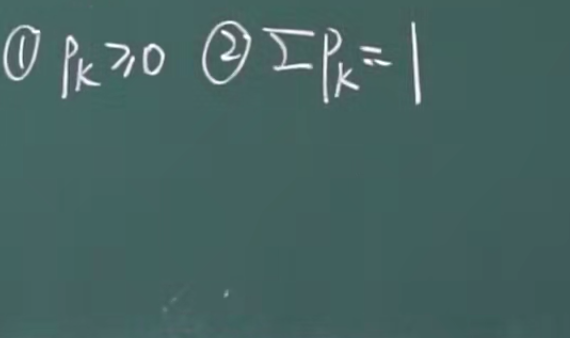 ① Pₖ⩾0 ② ΣPₖ=1